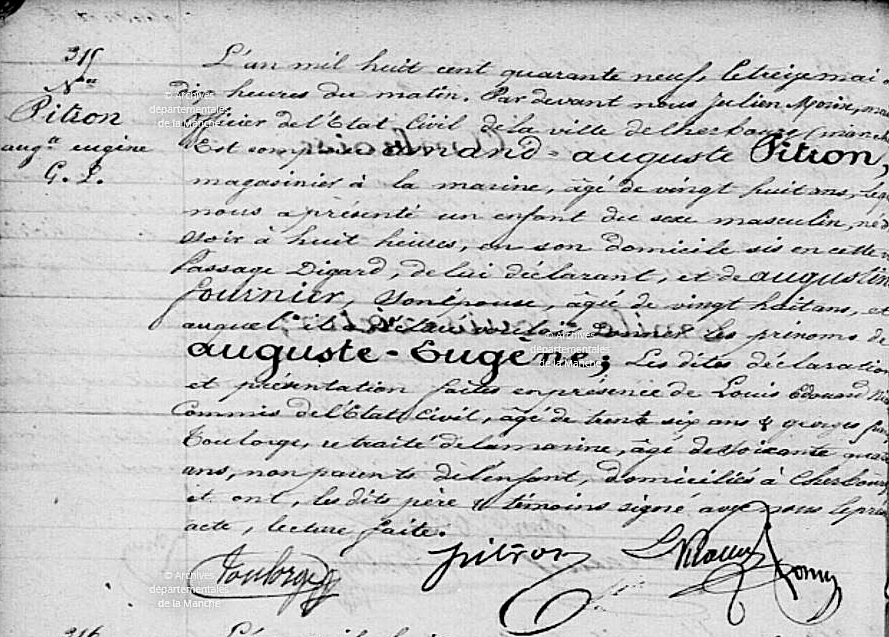 315
N^ce
Pitron
aug^te eugène
G. L.
L'an mil huit cent quarante neuf, le treize mai
dix heures du matin. Par devant nous Julien Morin,
officier de l'Etat Civil de la ville de cherbourg (manche
Est comparu auguste Pitron,
magasinier à la marine, âgé de vingt huit ans, leq
nous a présenté un enfant du sexe masculin, né
soir à huit heures, en son domicile sis en cette
Passage Digard, de lui déclarant, et de augustin
fournier, son épouse, âgée de vingt huit ans, et
auquel il a déclaré vouloir donner les prénoms de
auguste-Eugène; Les dites déclaration
et présentation faites en présence de Louis Edouard
Commis de l'Etat Civil, âgé de trente six ans & georges
Toulorge, retraité de la marine, âgé de soixante
ans, non parents de l'enfant, domiciliés à Cherbourg
et ont, les dits père & témoins signé avec nous le pré
acte, lecture faite.
Toulorge pitron
316
L'an mil huit
© Archives
départementales
de la Manche
© Archives
départementales
de la Manche
© Archives
départementales
de la Manche